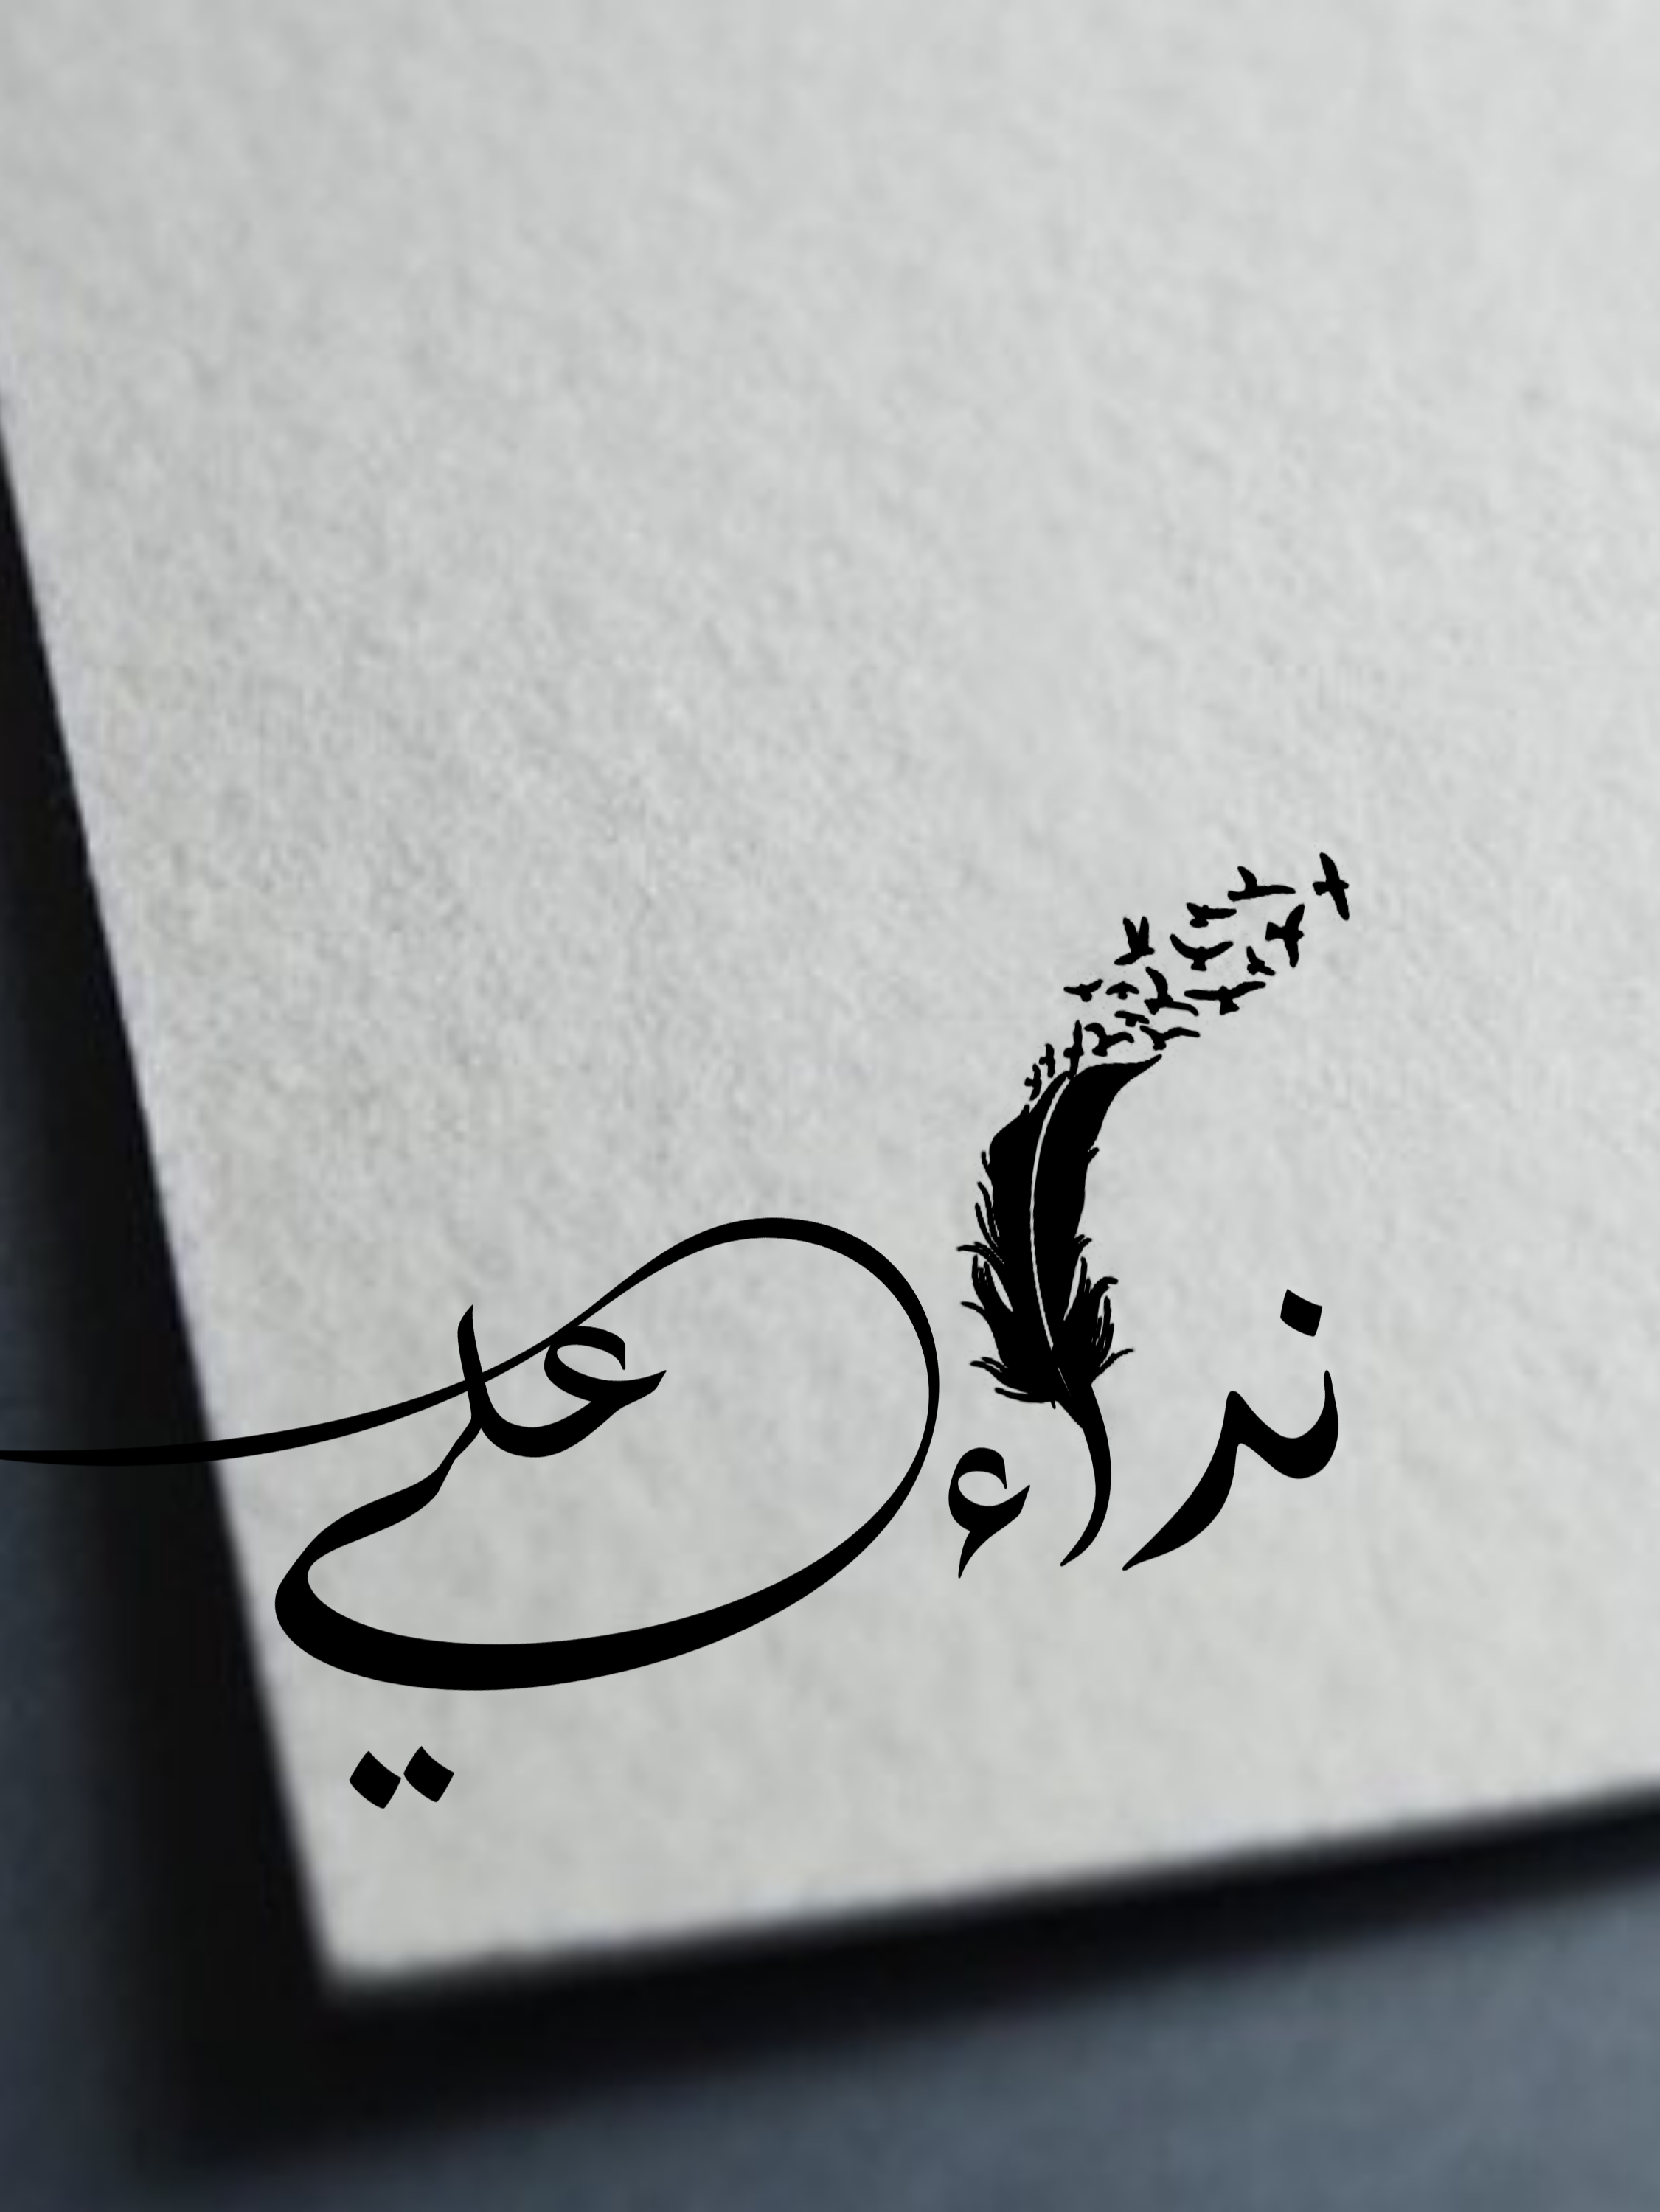 نداء علي